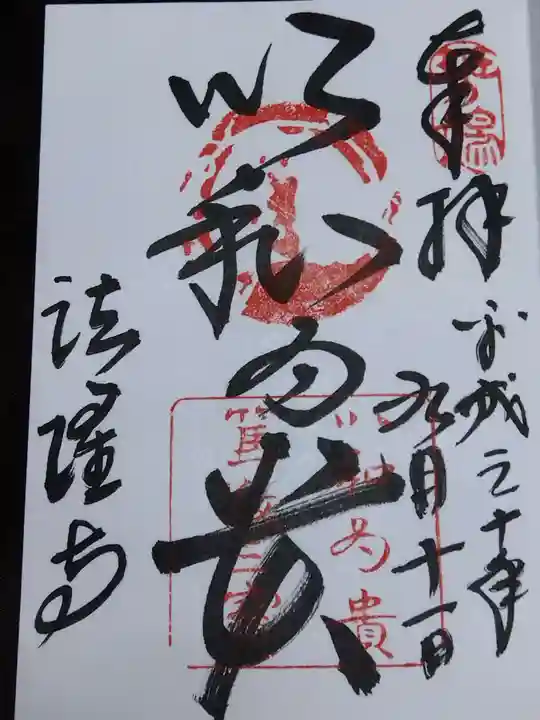 奉拝
平成三十年
九月十一日
以和為貴
法隆寺
以和為貴
篤敬三宝